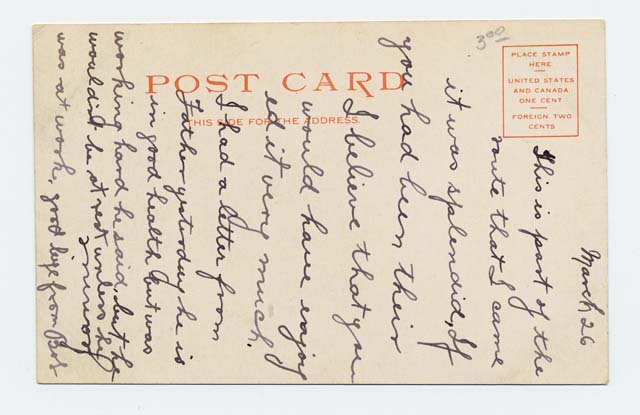 3 00
POST CARD
THIS SIDE FOR THE ADDRESS.
PLACE STAMP
HERE
UNITED STATES
AND CANADA
ONE CENT
FOREIGN, TWO
CENTS
March 26
This is part of the
route that I came
it was splendid, If
you had been their
I believe that you
would have enjoy
ed it very much.
I had a letter from
Father yesterday he is
in good health but was
working hard he said, but he
would'nt be at rest unless he
was at work, good bye from Bob